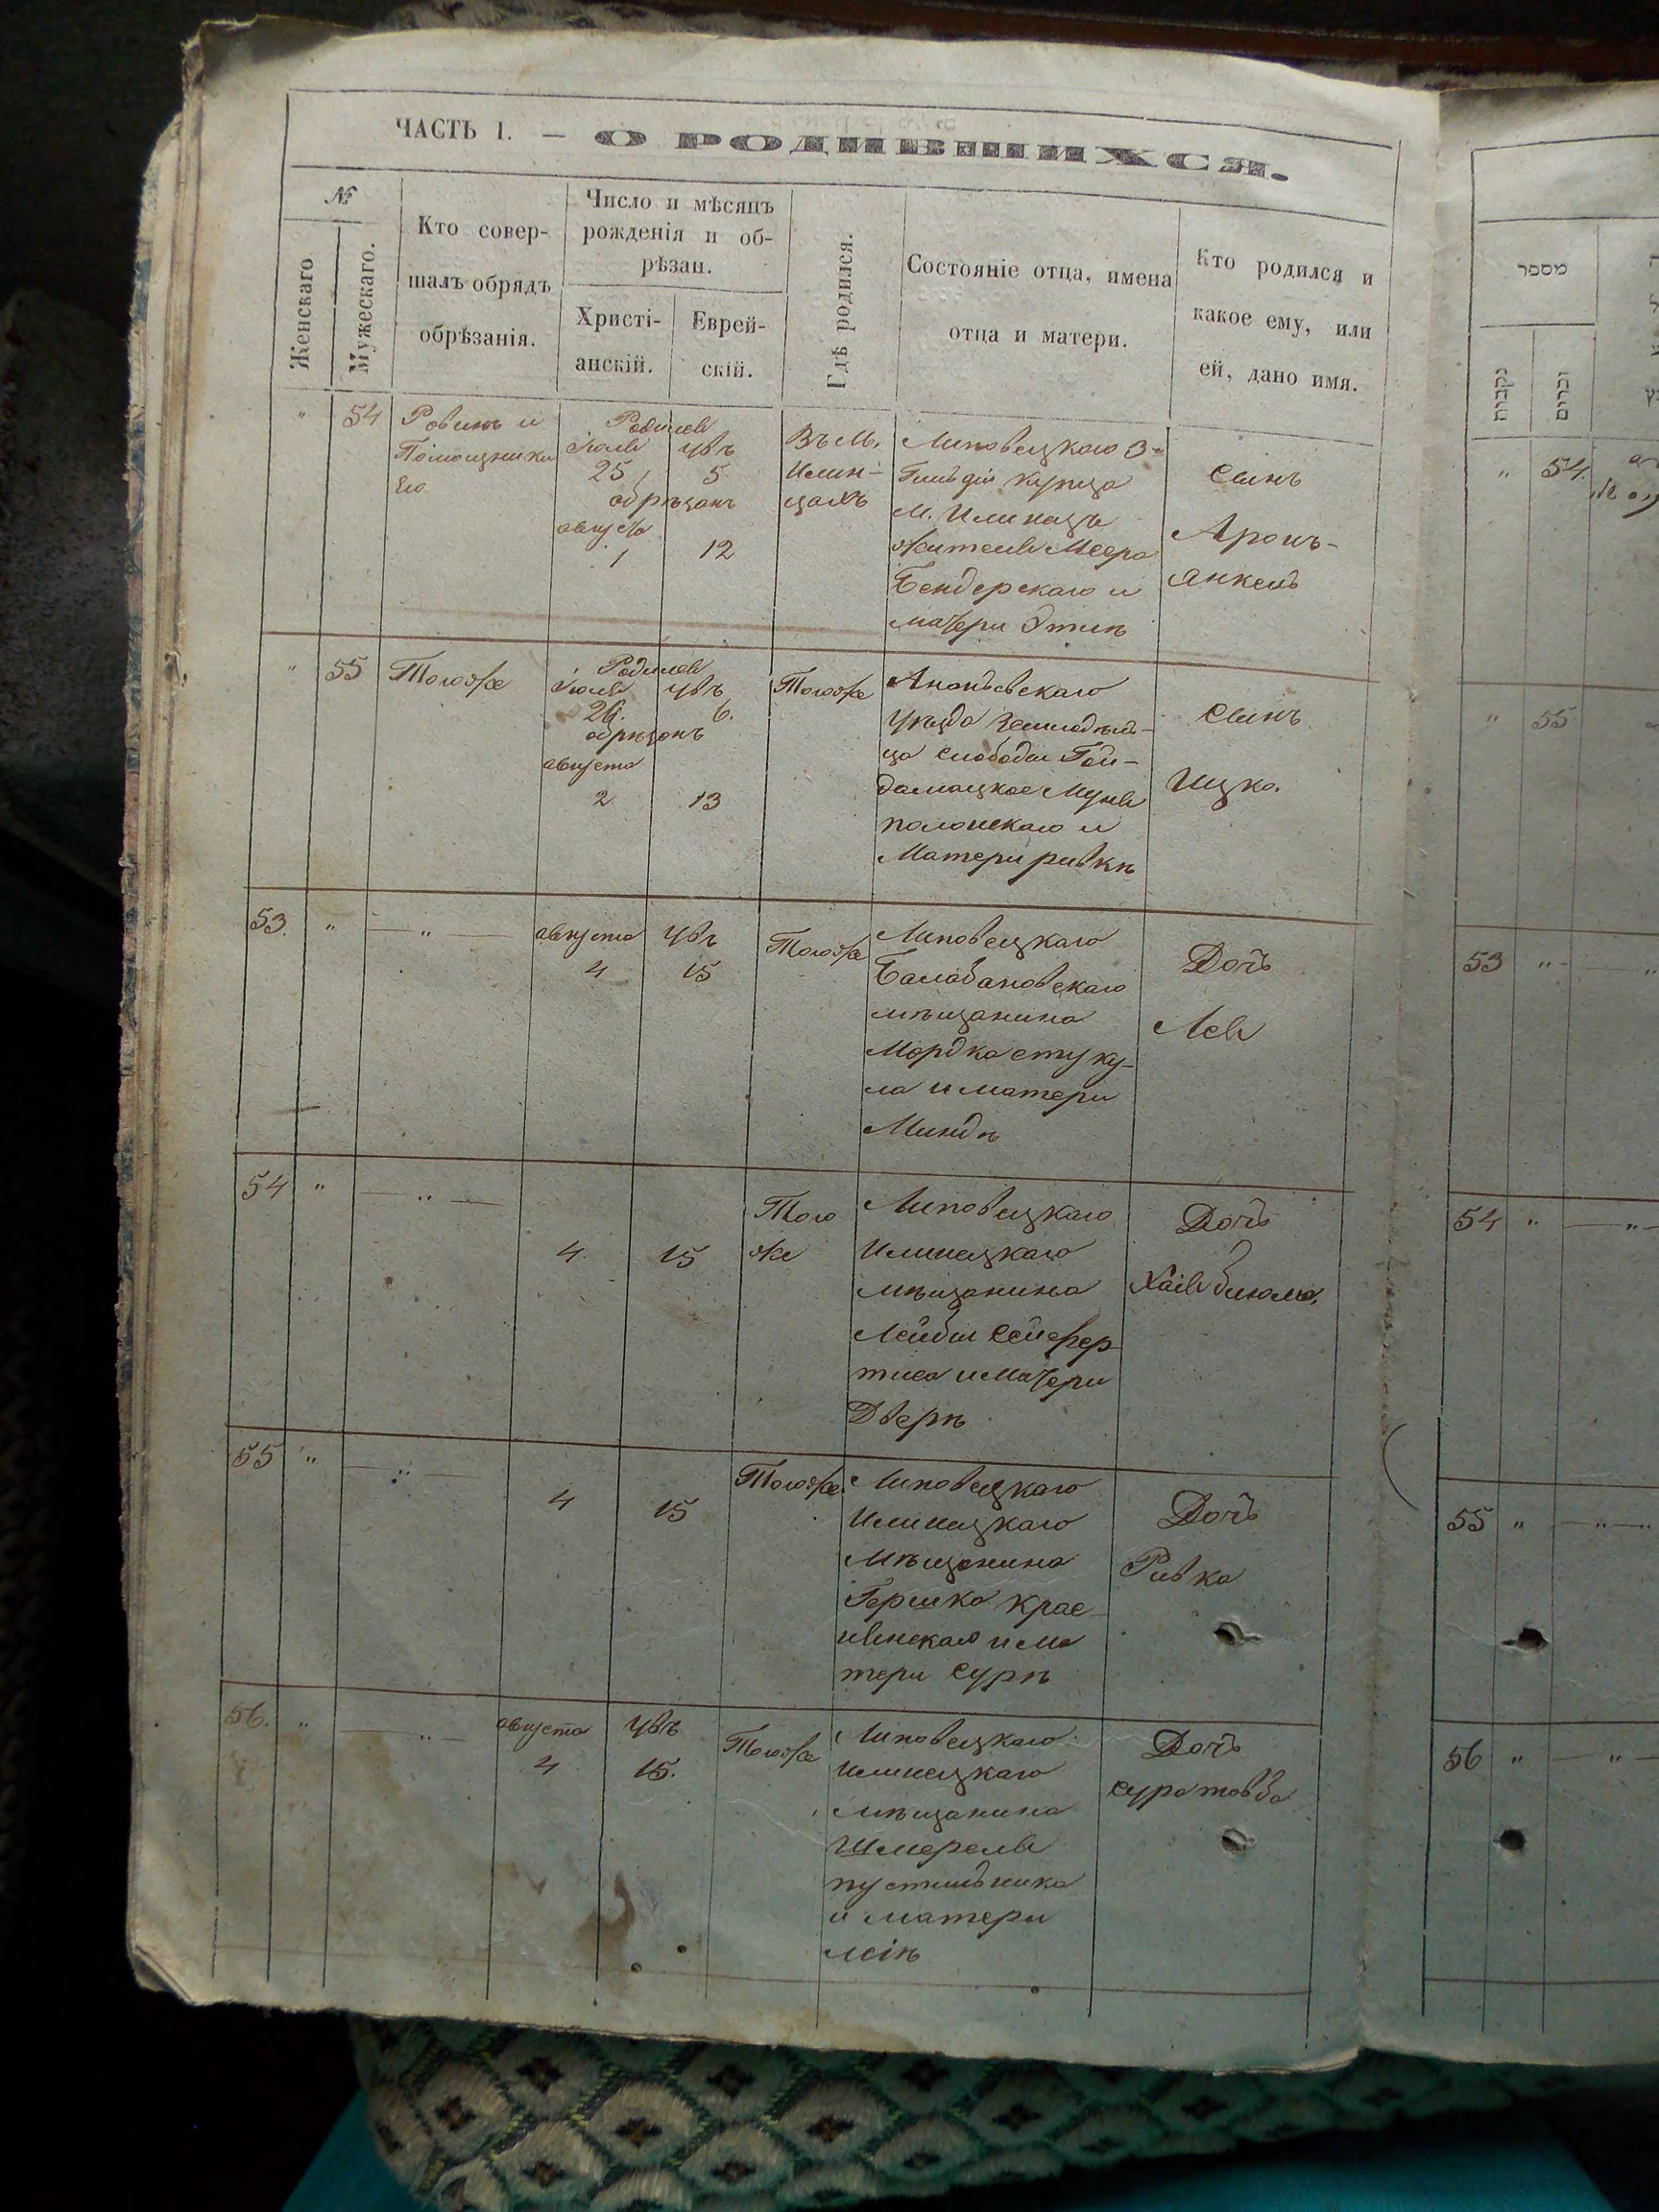 ЧАСТЬ I. — О РОДИВШИХСЯ.
№
Женскаго
Мужескаго.
Кто совер-
шалъ обрядъ
обрѣзанія.
Число и мѣсяцъ
рожденія и об-
рѣзан.
Христі-
анскій.
Еврей-
скій.
Гдѣ родился.
Состояніе отца, имена
отца и матери.
Кто родился и
какое ему, или
ей, дано имя.
" 54
Равинъ и
Помощники
Его
Родился
Іюля
25 5
обрѣзанъ
августа
1 12
Въ М.
Илин-
цахъ
Липовецкаго 3й
Гильдіи купца
М. Илинецъ
Жителя Меера
Бендерскаго и
матери Этик
Сынъ
Аронъ-
Янкель
" 55
Тогоже
Родился
Іюля
26. 6.
обрѣзанъ
августа
2 13
Тогоже
Ананьевскаго
уѣзда Земледѣль-
ца слободы Гай-
дамацкое
полонскаго и
Матери ривкѣ
Сынъ
Ицко.
53. " — " —
августа
4 15
Тогоже
Липовецкаго
Балабановскаго
мѣщанина
Мордка стуку-
ла и матери
Миндѣ
Дочь
Лея
54 " — " —
4. 15
Того
же
Липовецкаго
Илинецкаго
мѣщанина
Лейбы
и Матери
Двѣрѣ
Дочь
Хая блюма.
55 " — " —
4 15
Тогоже
Липовецкаго
Илинецкаго
Мѣщанина
Гершка крас-
янскаго и ма
тери сурѣ
Дочь
Ривка
56. " — " —
августа
4 15.
Тогоже
Липовецкаго
Илинецкаго
мѣщанина
Шмереля
пустильника
и матери
леіѣ
Дочь
сура товба
מספר
נקבות
זכרים
" 54.
" 55
53 " — "
54 " — " —
55 " — " —
56 " — " —